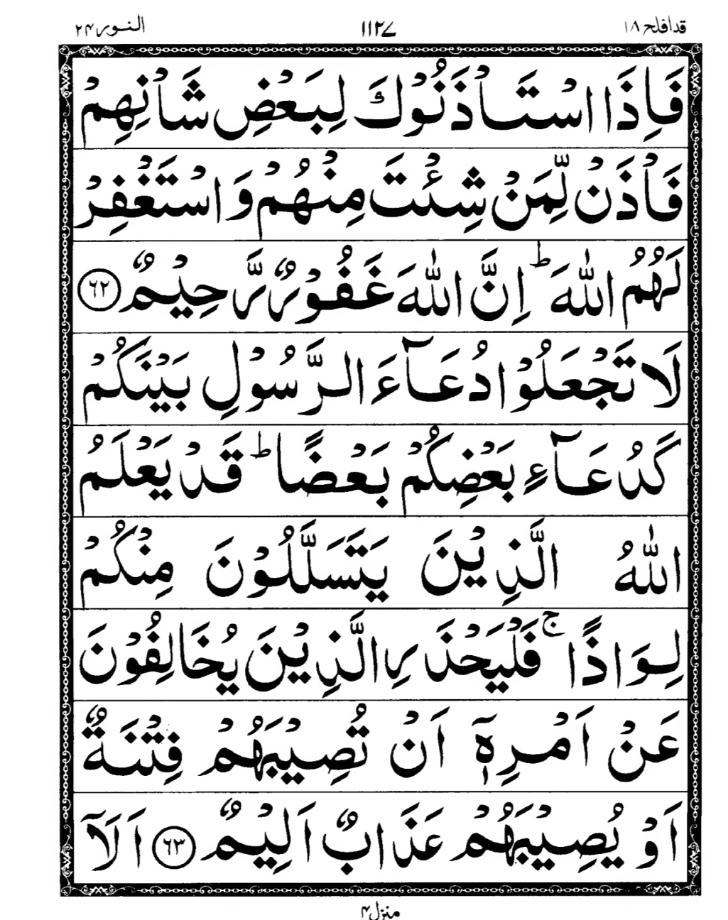 قدافلح ۱۸ ۱۱۲۷ النور ۲۴
فَاِذَا اسْتَاْذَنُوْكَ لِبَعْضِ شَاْنِهِمْ
فَاْذَنْ لِّمَنْ شِئْتَ مِنْهُمْ وَاسْتَغْفِرْ
لَهُمُ اللّٰهَ ؕ اِنَّ اللّٰهَ غَفُوْرٌ رَّحِيْمٌ ﴿۶۲﴾
لَا تَجْعَلُوْا دُعَآءَ الرَّسُوْلِ بَيْنَكُمْ
كَدُعَآءِ بَعْضِكُمْ بَعْضًا ؕ قَدْ يَعْلَمُ
اللّٰهُ الَّذِيْنَ يَتَسَلَّلُوْنَ مِنْكُمْ
لِوَاذًا ۚ فَلْيَحْذَرِ الَّذِيْنَ يُخَالِفُوْنَ
عَنْ اَمْرِهٖۤ اَنْ تُصِيْبَهُمْ فِتْنَةٌ
اَوْ يُصِيْبَهُمْ عَذَابٌ اَلِيْمٌ ﴿۶۳﴾ اَلَاۤ
منزل ۴